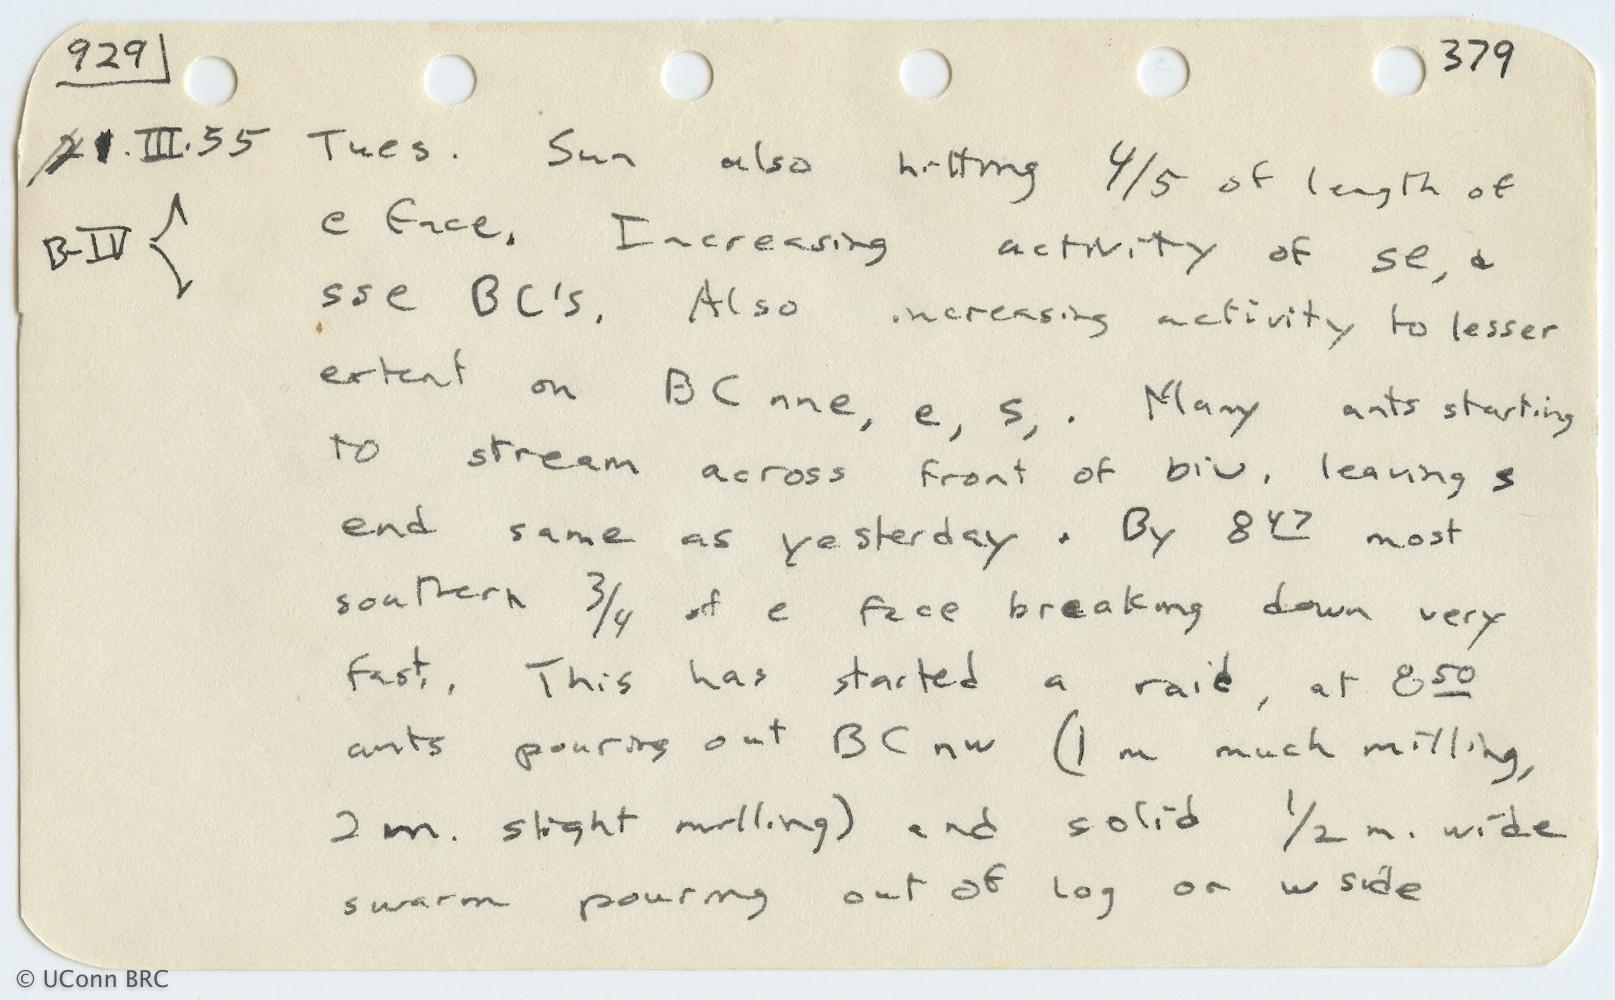 929 379
1.III.55 Tues. Sun also hitting 4/5 of length of
B-IV e face. Increasing activity of se, &
sse BC's. Also increasing activity to lesser
extent on BC nne, e, s,. Many ants starting
to stream across front of biv. leaving s
end same as yesterday. By 8 47 most
southern 3/4 of e face breaking down very
fast,. This has started a raid, at 8 50
ants pouring out BC nw (1 m much milling,
2 m. slight milling) and solid 1/2 m. wide
swarm pouring out of log on w side
© UConn BRC